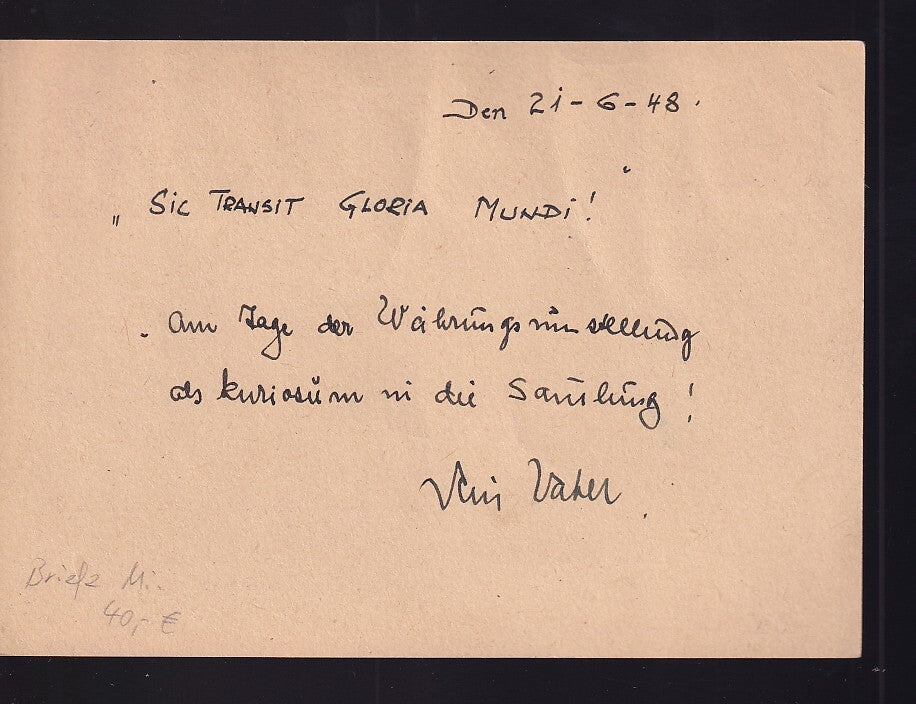 Den 21-6-48.
„ SIC TRANSIT GLORIA MUNDI! "
Am Tage der Währungsumstellung
als Kuriosum in die Sam̄lung!
Dein Vater.
Briefe Mi.
40,- €